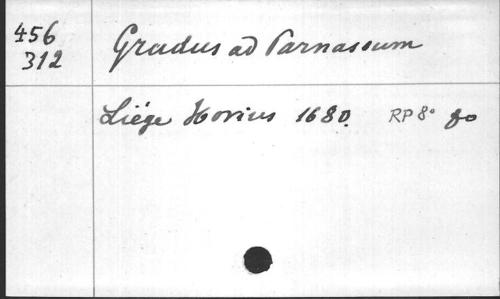 456
312
Gradus ad Parnassum
Liége Hovius 1680. RP 8°